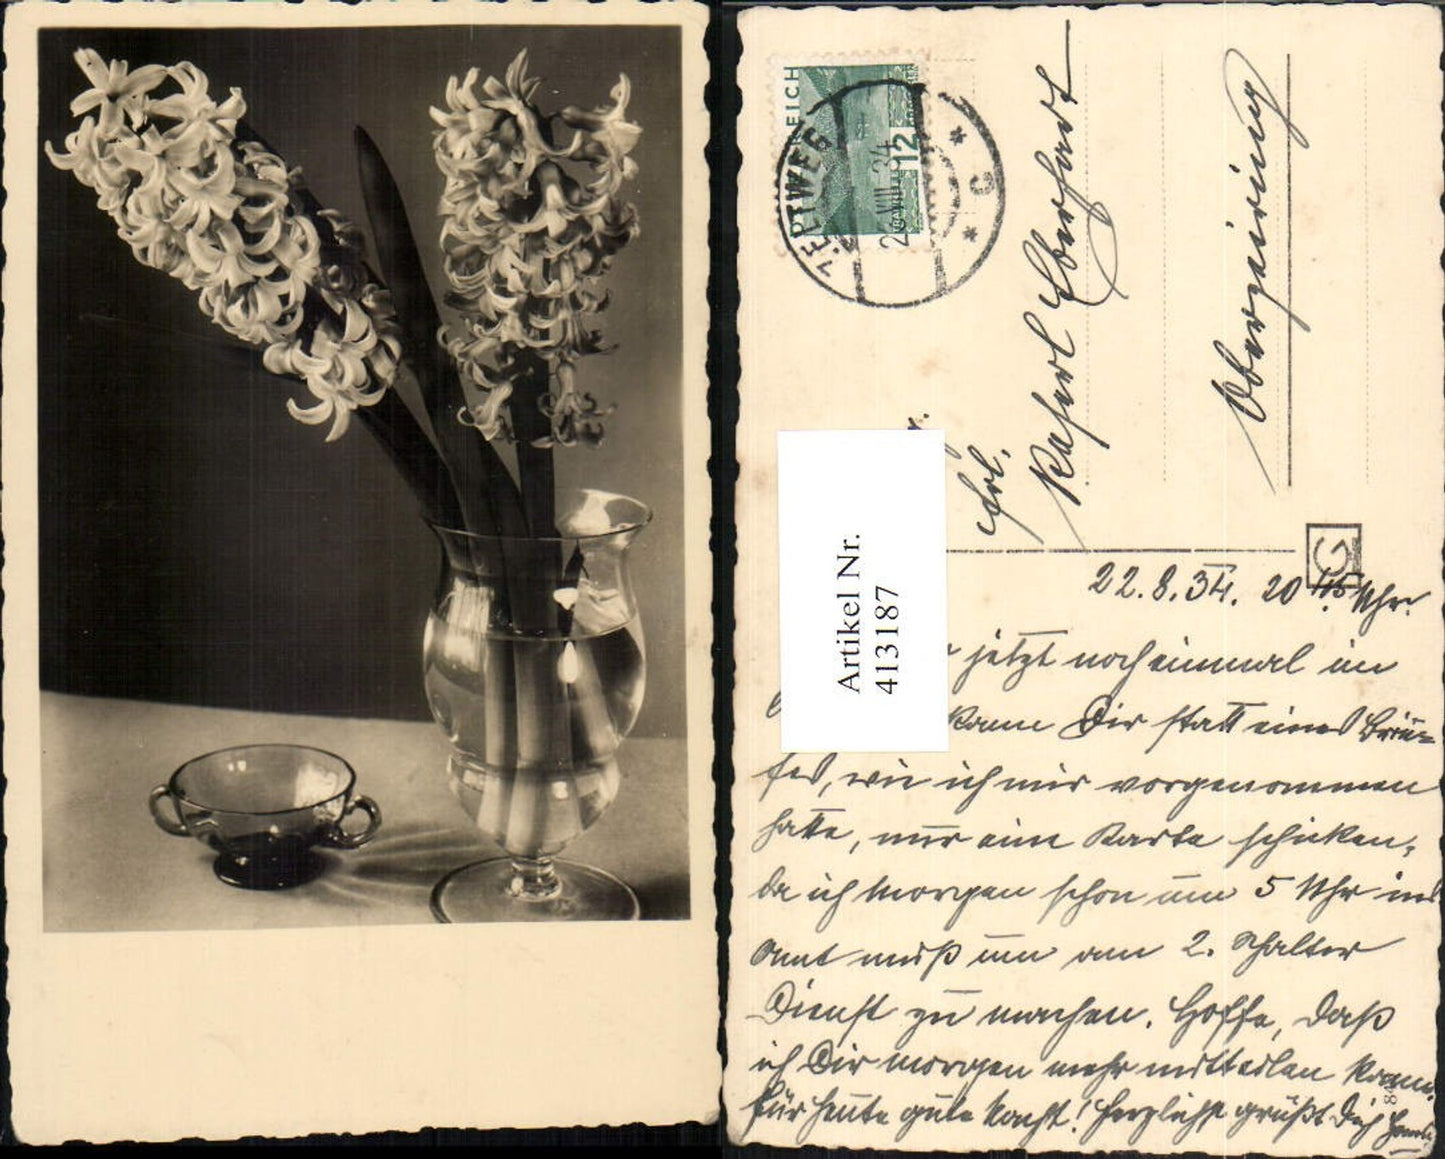 REICH
12
ZELTWEG
2 .VIII.34
* C *
Frl.
Eberhart
22.8.34. 20 45 Uhr.
G
Artikel Nr.
413187
jetzt nocheinmal im
kann Dir statt eines Brie=
fes, wie ich mir vorgenommen
hatte, nur eine Karte schicken,
da ich morgen schon um 5 Uhr ins
Amt muß um am 2. Schalter
Dienst zu machen. Hoffe, daß
ich Dir morgen mehr mitteilen kann.
Für heute gute Nacht! Herzlichst grüßt Dich